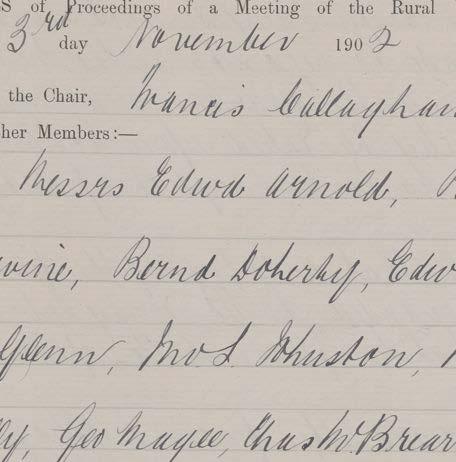 S of Proceedings of a Meeting of the Rural
3rd day November 1902
the Chair, Francis Callaghan
her Members:—
Messrs Edwd Arnold,
vine, Bernd Doherty, Edw
Glenn, Jno. S. Johnston,
ly, Geo Magee, Chas McBrear